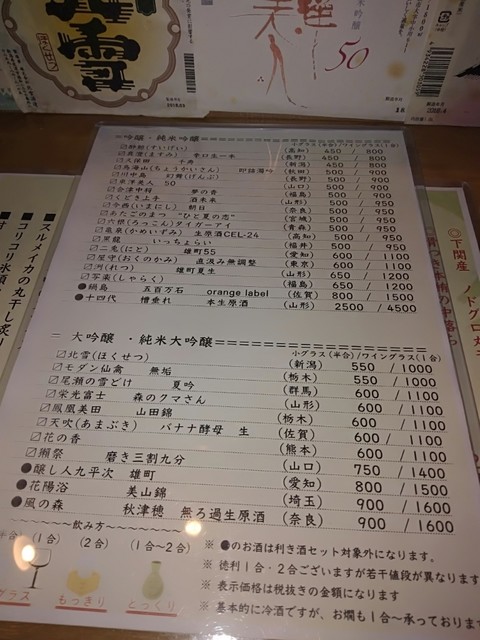 美人
純米吟醸
50
=吟醸・純米吟醸================
小グラス(半合)/ワイングラス(1合)
☑酔鯨(すいげい) (高知) 450 / 800
☑真澄(ますみ) 辛口生一本 (長野) 450 / 800
☑久保田 千寿 (新潟) 450 / 800
☑鳥海山(ちょうかいさん) 即詰瀞吟 (秋田) 500 / 900
☑川中島 幻舞(げんぶ) (長野) 500 / 900
☑東洋美人 50 (山口) 500 / 900
☑会津中将 夢の香 (福島) 500 / 900
☑くどき上手 酒未来 (山形) 500 / 950
☑今西(いまにし) 朝日 (奈良) 500 / 950
☑あたごのまつ “ひと夏の恋” (宮城) 500 / 950
☑六根(ろっこん)タイガーアイ (青森) 500 / 950
☑亀泉(かめいずみ) 生原酒CEL-24 (高知) 500 / 950
☑黒龍 いっちょらい (福井) 500 / 950
☑二兎(にと) 雄町55 (愛知) 600 / 1100
☑屋守(おくのかみ) 直汲み無調整 (東京) 600 / 1100
☑河(れつ) 雄町夏生 (山形) 650 / 1200
☑写楽(しゃらく) (福島) 650 / 1200
●鍋島 五百万石 orange label (佐賀) 800 / 1500
●十四代 槽垂れ 本生原酒 (山形) 2500 / 4500
= 大吟醸 ・純米大吟醸================
小グラス(半合)/ワイングラス(1合)
☑北雪(ほくせつ) (新潟) 550 / 1000
☑モダン仙禽 無垢 (栃木) 550 / 1000
☑尾瀬の雪どけ 夏吟 (群馬) 600 / 1100
☑栄光富士 森のクマさん (山形) 600 / 1100
☑鳳凰美田 山田錦 (栃木) 600 / 1100
☑天吹(あまぶき) バナナ酵母 生 (佐賀) 600 / 1100
☑花の香 (熊本) 600 / 1100
☑獺祭 磨き三割九分 (山口) 750 / 1400
●醸し人九平次 雄町 (愛知) 800 / 1500
●花陽浴 美山錦 (埼玉) 900 / 1600
●風の森 秋津穂 無ろ過生原酒 (奈良) 900 / 1600
~~~~~飲み方~~~~~
(半合) (1合) (2合) (1合~2合)
グラス もっきり とっくり
※ ●のお酒は利き酒セット対象外になります。
※ 徳利1合・2合ございますが若干値段が異なります
※ 表示価格は税抜きの金額になります
※ 基本的に冷酒ですが、お燗も1合~承っております
■スルメイカの丸干し炙り
■コリコリ氷頭
◎下関産 ノドグロ丸